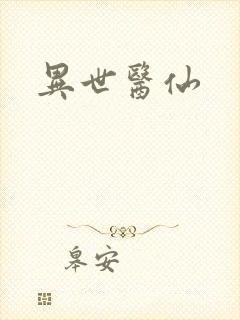 異世醫仙
皋安